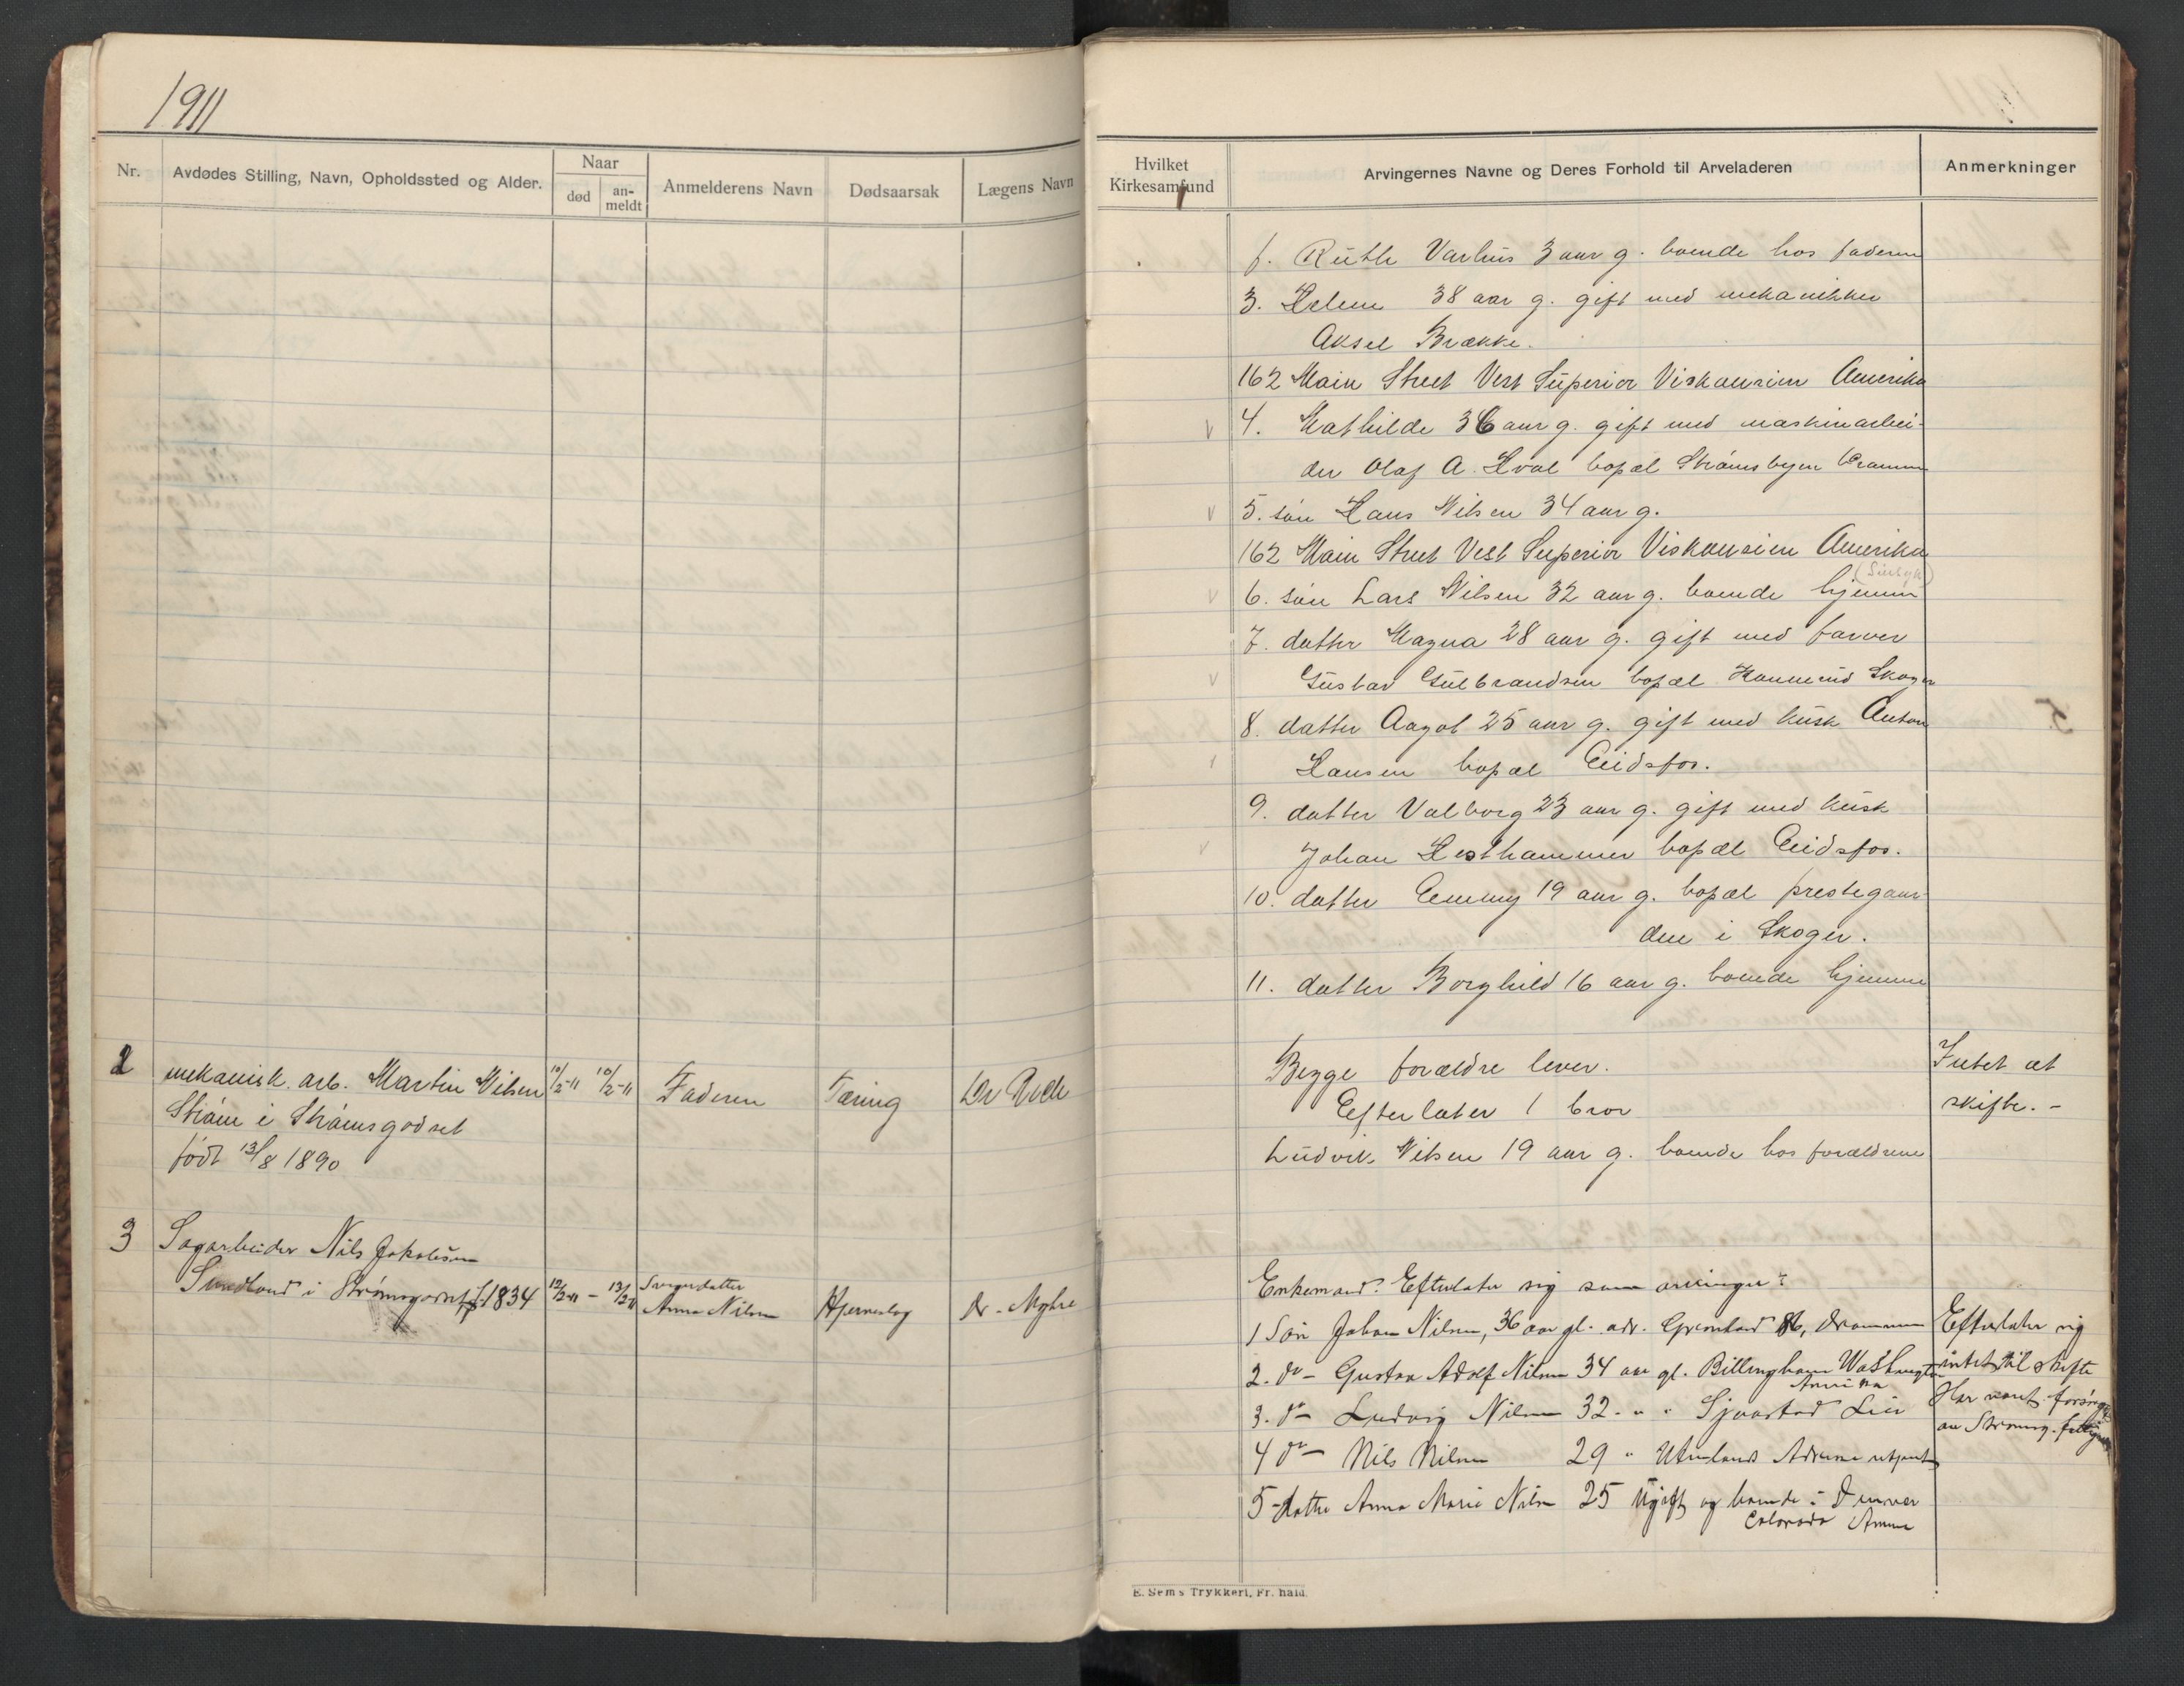 1911
Nr.
Avdødes Stilling, Navn, Opholdssted og Alder.
Naar
død
an-
meldt
Anmelderens Navn
Dødsaarsak
Lægens Navn
2
mekanisk. arb. Martin Nilsen
Strøm i Strømsgodset
født 13/8 1890
10/2-11
10/2-11
Faderen
Tæring
Dr
3
Sagarbeider Nils Jakobsen
Sundland i Strømsgodset f. 1834
12/2-11 - 13/2-11
Svigerdatter
Anna Nilsen
Hjerneslag
Dr. Myhre
Hvilket
Kirkesamfund
Arvingernes Navne og Deres Forhold til Arveladeren
Anmerkninger
f. Ruth Varhus 3 aar g. boende hos faderen
3. Helene 38 aar g. gift med mekanikker
Aksel Brække.
162 Main Street Vest Superior Viskonsien Amerika
4. Mathilde 36 aar g. gift med maskinarbei-
der Olaf A. Hval bopæl Strømsbyen Dramm
5. søn Hans Nilsen 34 aar g.
162 Main Street Vest Superior Viskonsien Amerika
(Sinsyk)
6. søn Lars Nilsen 32 aar g. boende hjemme
7. datter Magna 28 aar g. gift med farver
Gustav Gulbrandsen bopæl Konnerud Skoger
8. datter Aagot 25 aar g. gift med kusk Anton
Hansen bopæl Eidsfos.
9. datter Valborg 23 aar g. gift med kusk
Johan Hesthammer bopæl Eidsfos.
10. datter Emmy 19 aar g. bopæl prestegaar-
den i Skoger.
11. datter Borghild 16 aar g. boende hjemme
Begge forældre lever.
Efterlater 1 bror
Ludvik Nilsen 19 aar g. boende hos forældrene
Intet at
skifte. -
Enkemand. Efterlater sig som arvinger:
1 Søn Johan Nilsen, 36 aar gl. adr. Grønland 86, Drammen
2. do - Gustav Adolf Nilsen 34 aar gl. Billingham Washington
Amerika
3. do - Ludvig Nilsen 32 - " " Sjaastad Lier
4 do - Nils Nilsen 29 " Utenlands Adresse
5 - datter Anna Marie Nilsen 25 Ugift og boende i Denver
Colorado Amer
Efterlater sig
intet til skifte
Har været forsørget
av Strømsg.
E. Sem's Trykkeri, Fr. hald.